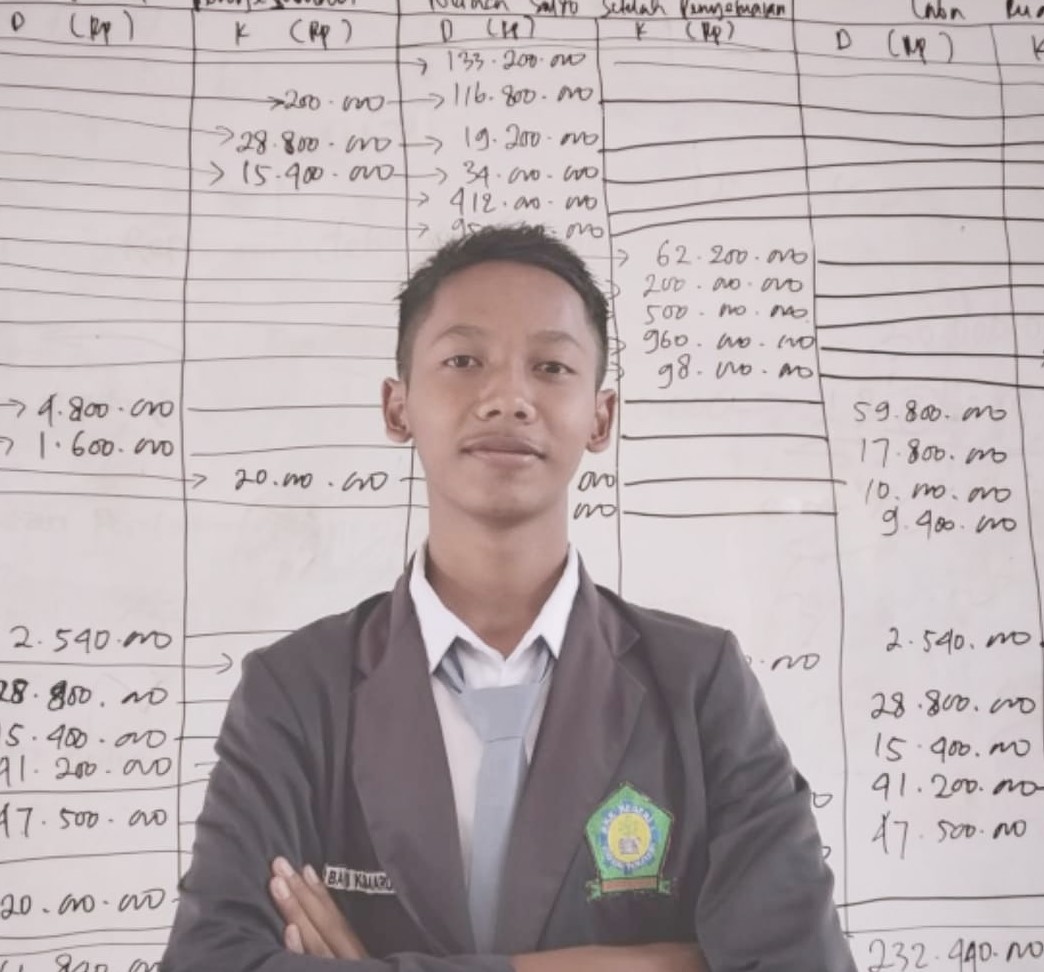 Setelah Penyesuaian
D (Rp) K (Rp) D (Rp) K (Rp) D (Rp) K
133.200.000
200.000 116.800.000
28.800.000 19.200.000
15.400.000 34.000.000
412.000.000
62.200.000
200.000.000
500.000.000
960.000.000
98.000.000
4.800.000 59.800.000
1.600.000 17.800.000
20.000.000 000 10.000.000
000 9.400.000
2.540.000 2.540.000
28.800.000 28.800.000
15.400.000
91.200.000 91.200.000
47.500.000 47.500.000
20.000.000
232.440.000